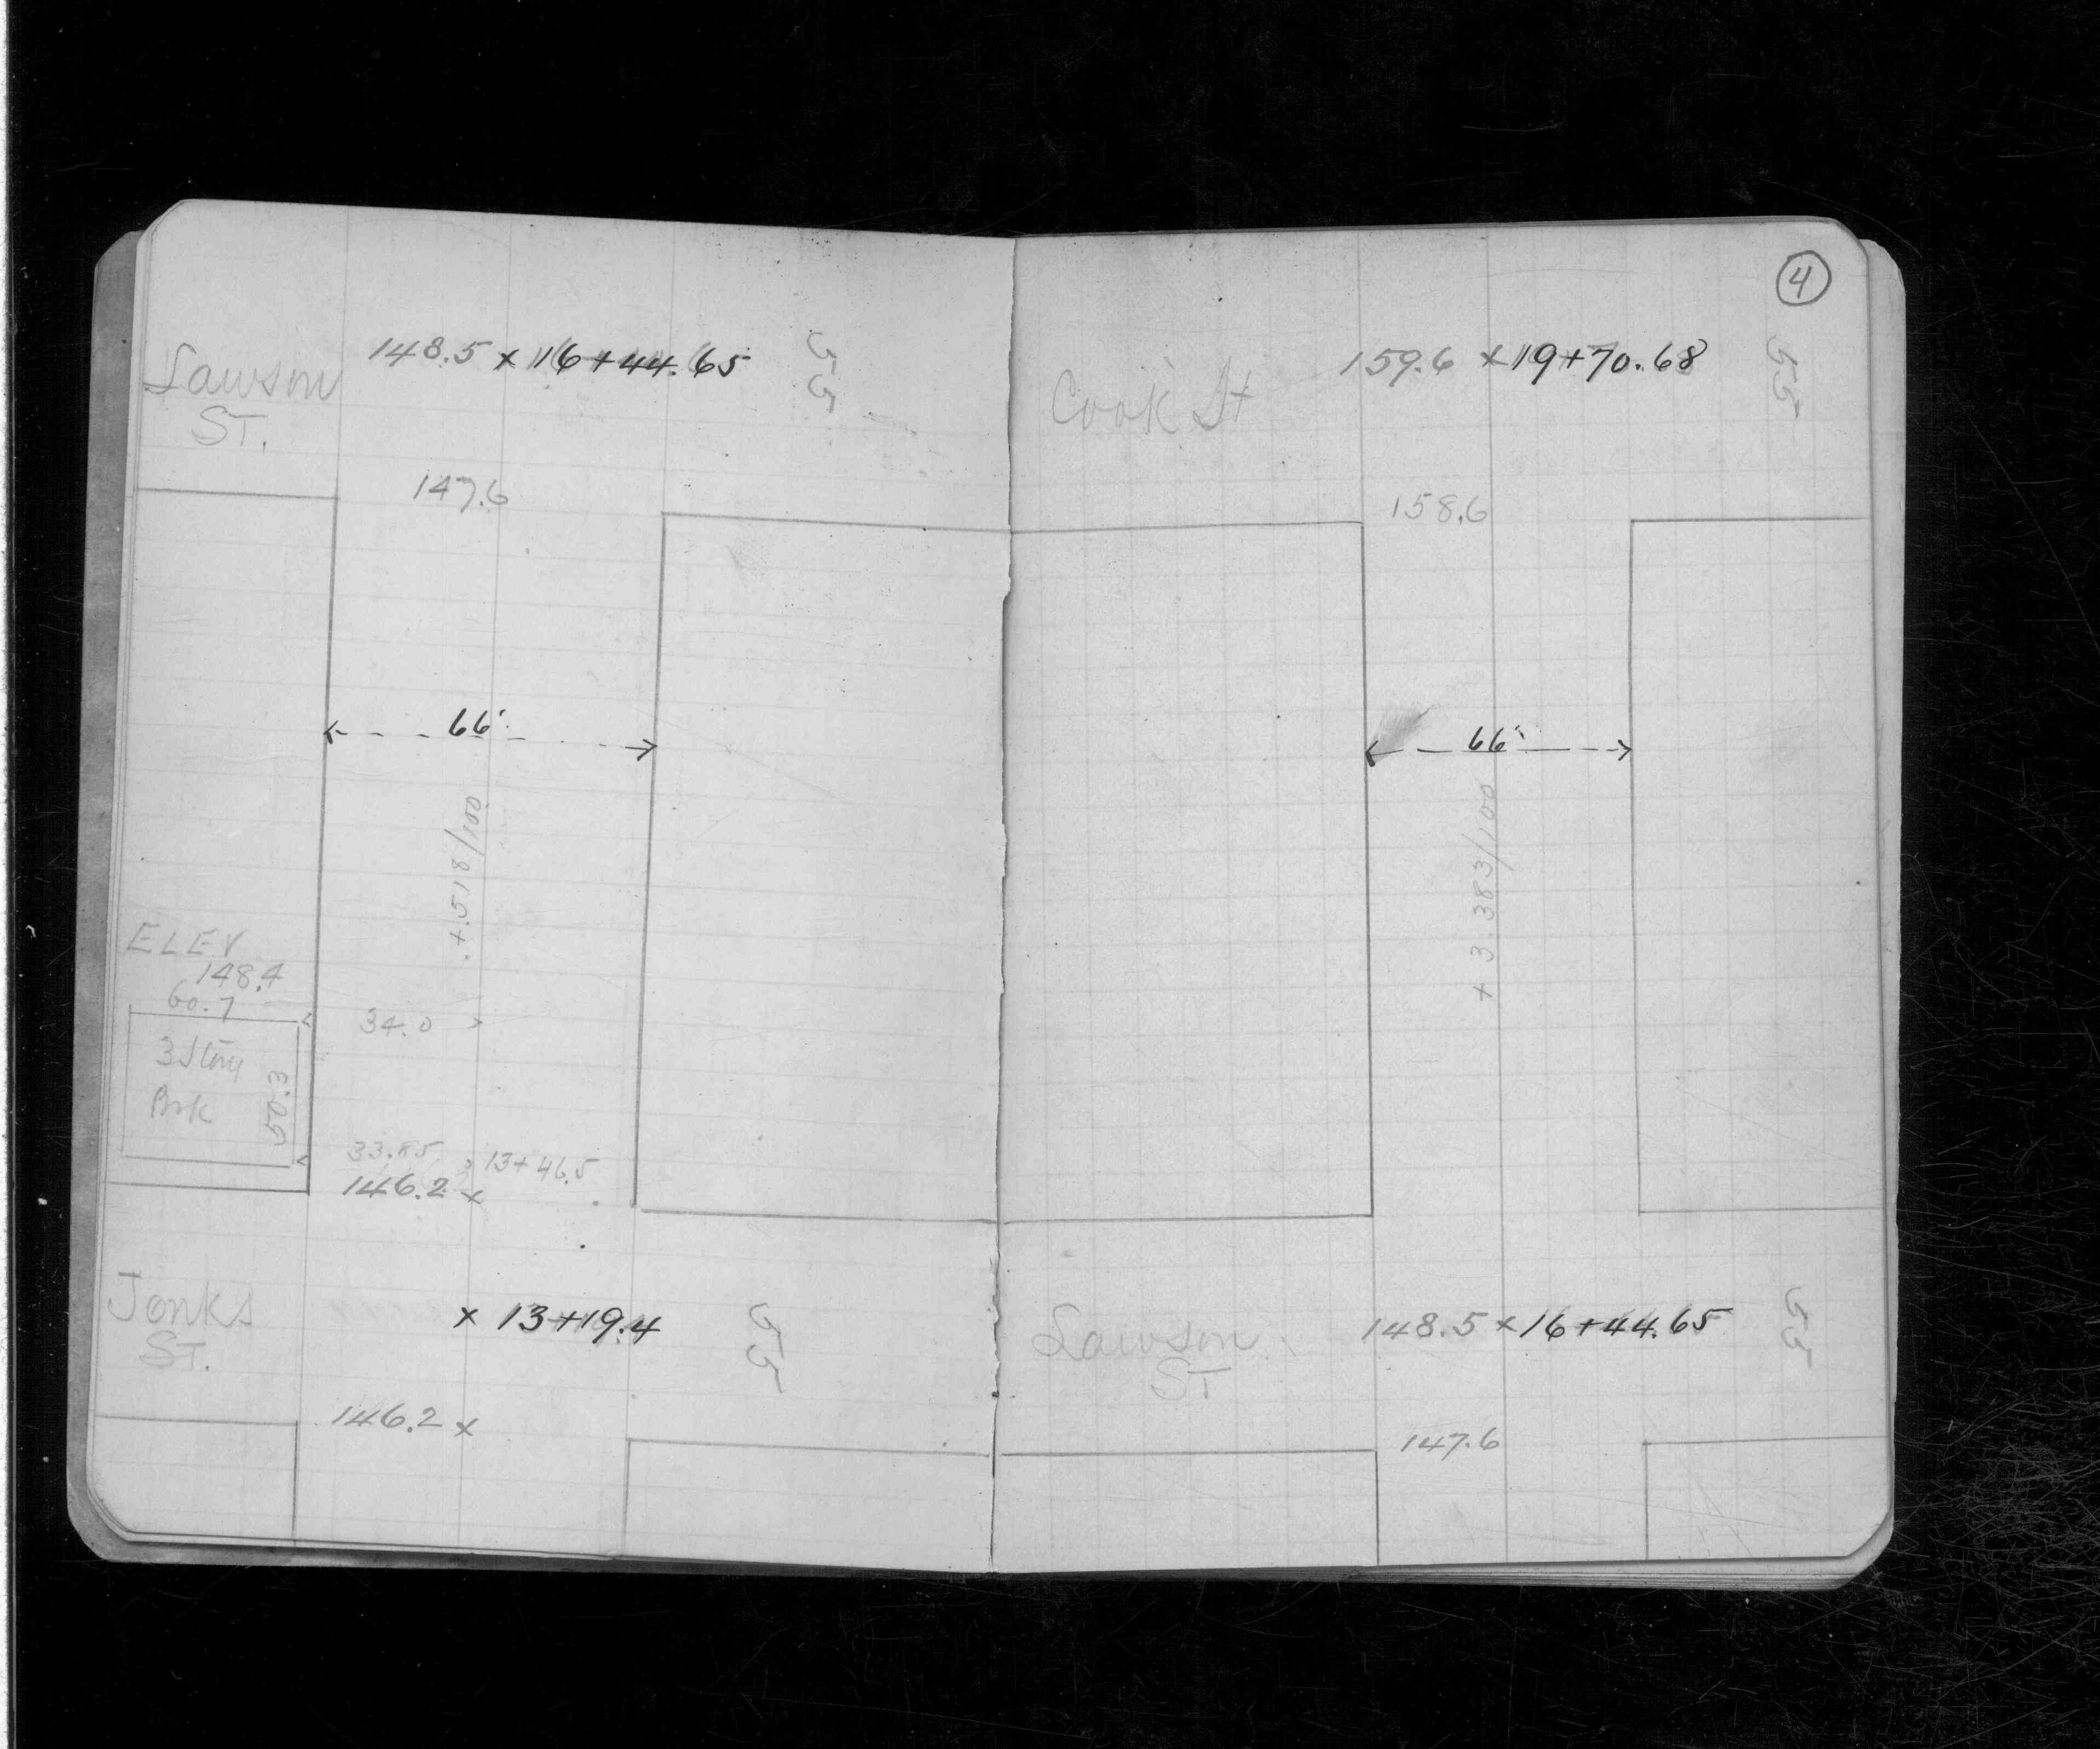 Lawson
ST.
148.5 x 16+44.65
55
147.6
66'
+.518/100
ELEV
148.4
60.7
3 Story
Brk
50.3
34.0
33.85
13+46.5
146.2 x
Jenks
ST.
x 13+19.4
55
146.2 x
4
Cook St
159.6 x 19+70.68
55
158.6
66'
+3.383/100
Lawson
ST
148.5 x 16+44.65
55
147.6